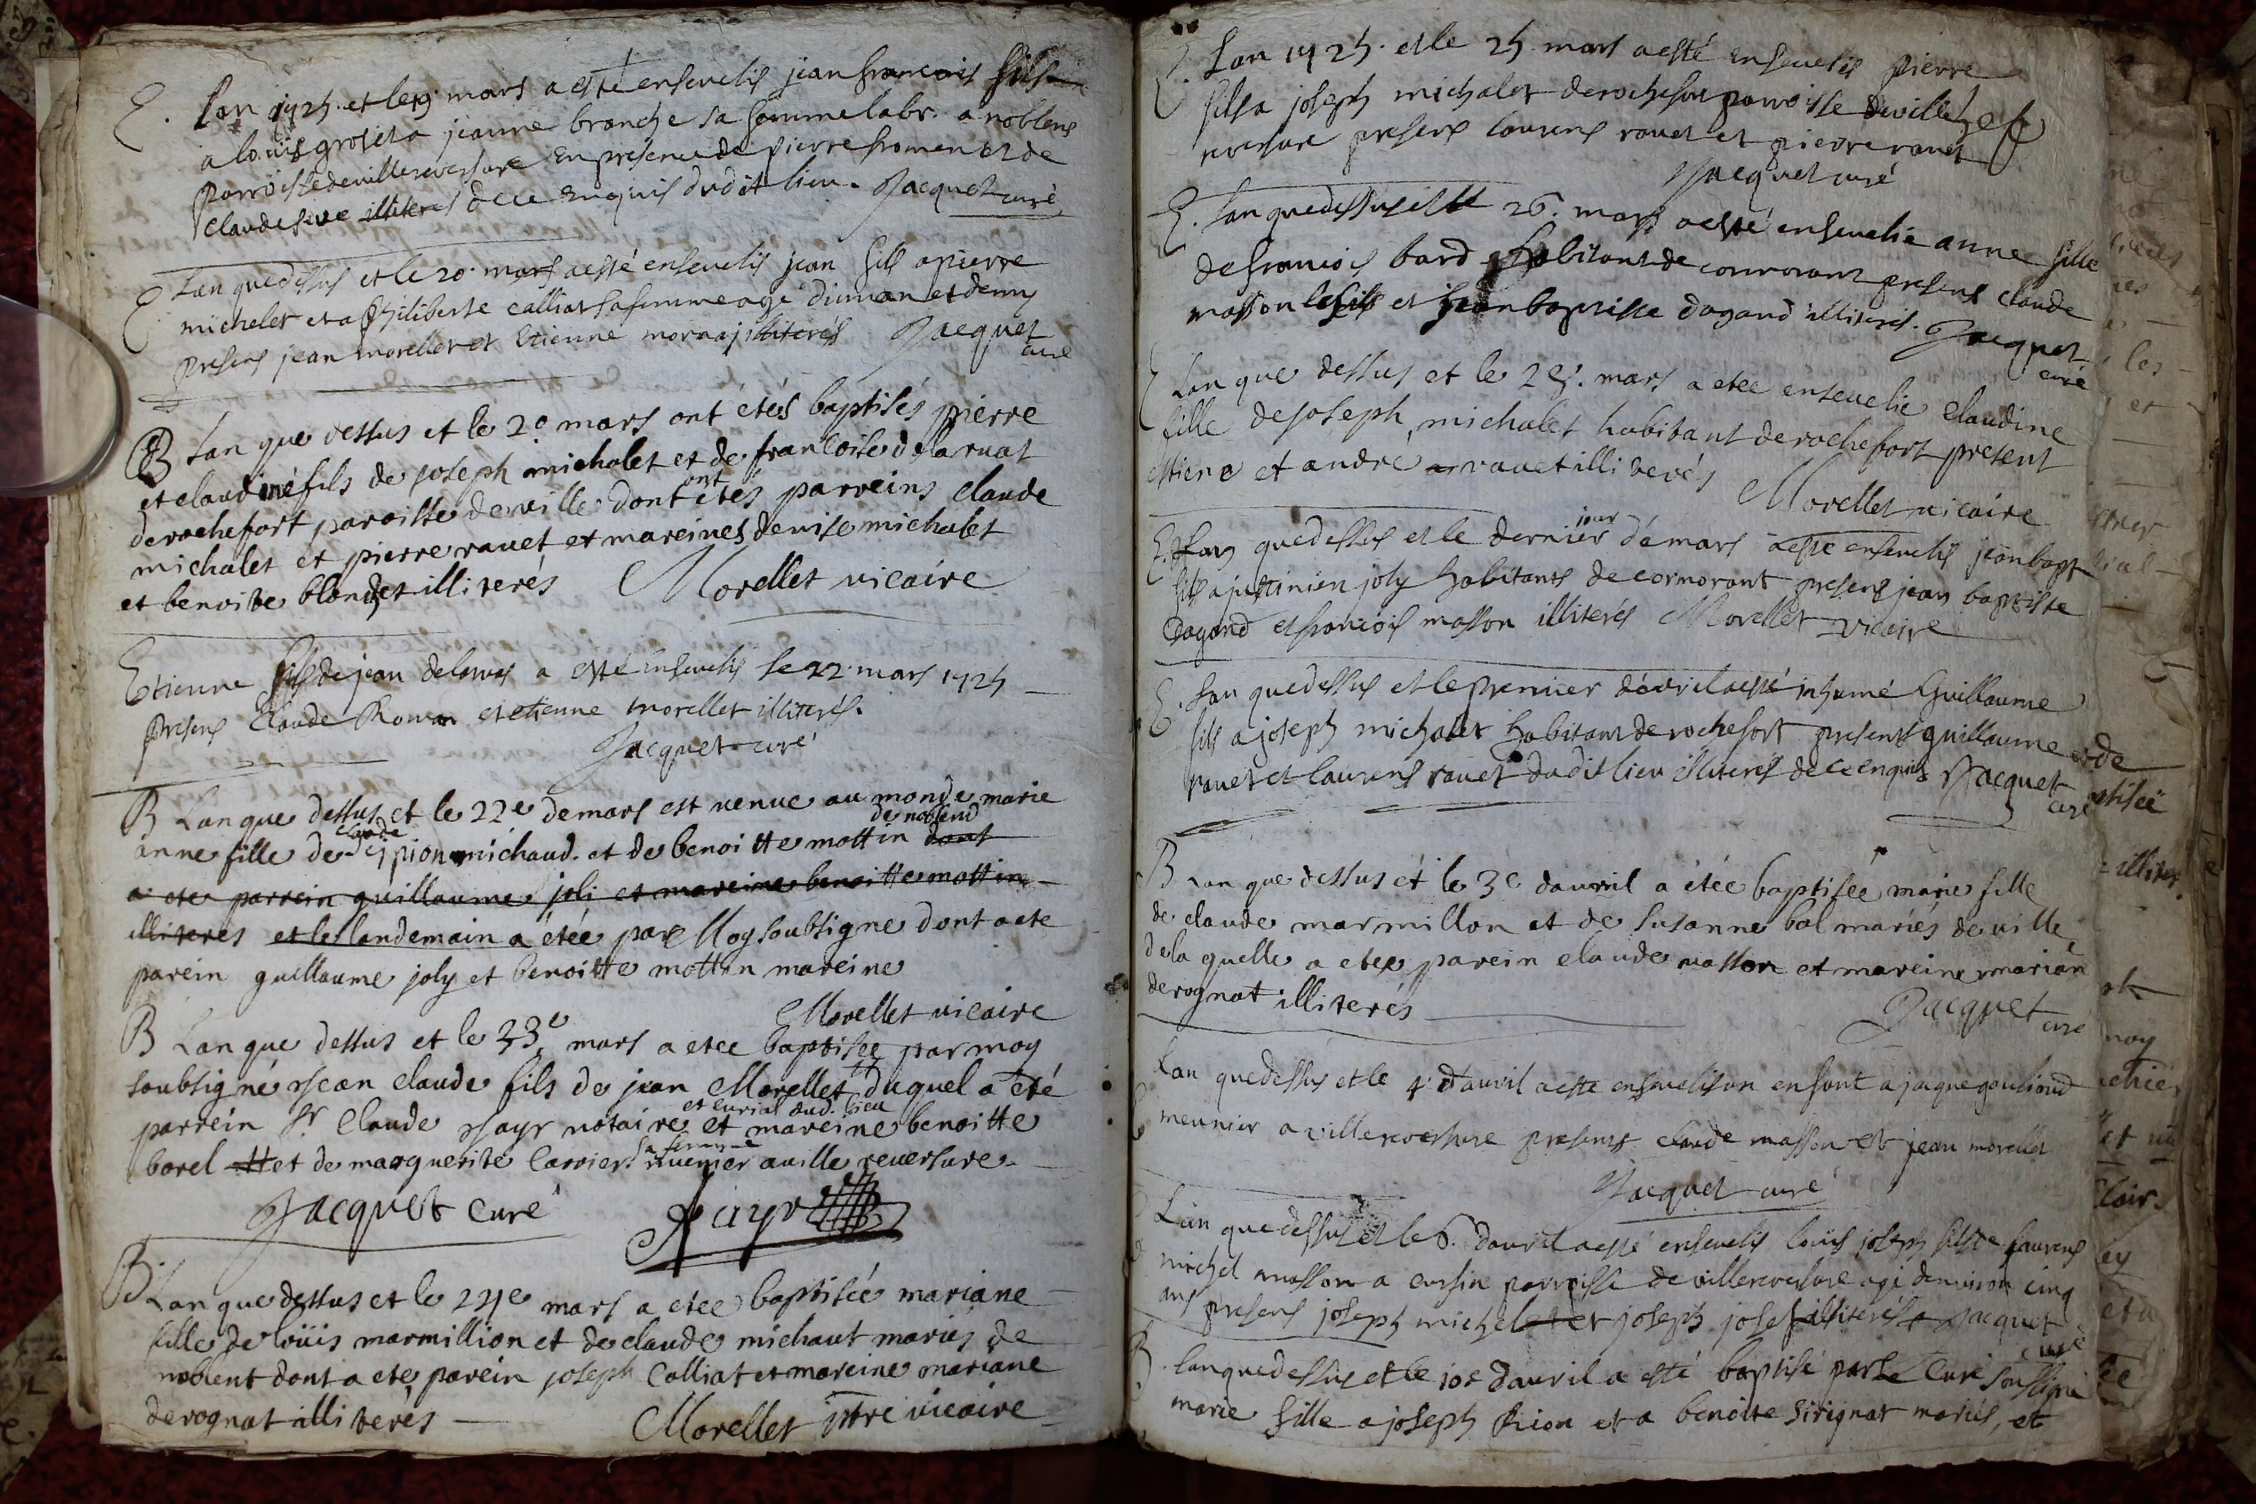 E. Lan 1725. et le 19 mars a esté ensevelis jean francois fils
a loüis groset a jeanne branche sa femme labr. a noblens
parroisse de villereversure en presence de pierre froment et de
claude illiterés de ce enquis dudit lieu. Jacquet curé
E Lan que dessus et le 20 mars a esté ensevelis jean fils a pierre
michelet et a philiberte calliat sa femme agé dun an et demy
presens jean morellet et Etienne illiterés Jacquet
curé
B Lan que dessus et le 20 mars ont étés baptisés pierre
et claudine fils de joseph michalet et de francoise delaruat
de rochefort paroisse de ville dont ont étés parreins claude
michalet et pierre ravet et mareines denise michalet
et benoite blondet illiterés Morellet vicaire
Etienne fils de jean a esté ensevelis le 22 mars 1725
presens claude Roman et etienne morellet illiterés.
Jacquet curé
B Lan que dessus et le 22e de mars est venue au monde marie
anne fille de claude michaud. et de benoitte mottin de noblend dont
a ete parrein guillaume joli et mareine benoitte mottin
illiterés et le landemain a étée par Moy soubsigne dont a ete
parein guillaume joly et benoitte mottin mareine
Morellet vicaire
B Lan que dessus et le 23e mars a etee baptisée par moy
soubsigné jean claude fils de jean Morellet duquel a été
parrein Sr. Claude notaire et curial dud. lieu et mareine benoitte
borel et de marguerite Carrier sa femme a ville reversure
Jacquet curé
B. Lan que dessus et le 24e mars a etee baptisée mariane
fille de loüis marmillion et de claude michaut mariés de
noblent dont a ete parein joseph Calliat et mareine mariane
derognat illiterés Morellet ptre vicaire
E. Lan 1725. et le 25. mars a esté ensevelis pierre
fils a joseph michalet de rochefort parroisse de ville
reversure presens laurens ravet et pierre ravet
Jacquet curé
E. Lan que dessus et le 26. mars a esté ensevelie anne fille
de francois bard habitant de cormorant presens claude
masson le fils et jean baptiste dagand illiterés. Jacquet
curé
E Lan que dessus et le 28. mars a etee ensevelie Claudine
fille de joseph michalet habitant de rochefort present
estiene et andre ravet illiterés
Morellet vicaire
E. Lan que dessus et le dernier jour dé mars a esté ensevelis jean bapt
fils a justinien joly habitans de cormorant presens jean baptiste
Dagand et francois masson illiterés Morellet vicaire
E. Lan que dessus et le premier dávril a esté inhumé Guillaume
fils a joseph michalet habitant de rochefort presens guillaume
ravet et laurens ravet dudit lieu illiterés de ce enquis Jacquet
curé
B Lan que dessus et le 3e davril a étée baptisée marie fille
de claude marmillon et de susanne bal mariés de ville
de la quelle a etee parein claude masson et mareine marian
derognat illiterés Jacquet curé
Lan que dessus et le 4 davril a esté ensevelis un enfant a jaque
meunier a villereversure presents claude masson et jean morellet
Jacquet curé
Lan que dessus et le 6. davril a esté ensevelis loüis joseph fils de laurens
michel masson a cursin parroisse de villereversure agé denviron cinq
ans presens joseph michelet et joseph illiterés Jacquet
curé
B. lan que dessus et le 10e davril a esté baptisé par le Curé soussigné
marie fille a joseph et a benoîte Sirignat mariés, et